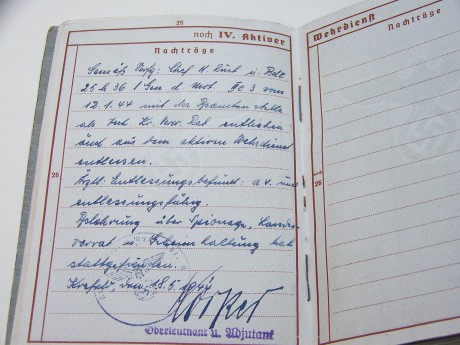 26
noch IV. Aktiver
Nachträge
Gemäß Verfg: Chef H. Rüst u. BdE
25 h 36 I Gen d. Mot. IIc 3 vom
12.1.44 mit der Beamtenstelle
als techn. Kr. Verw. Rat entliehen
und aus dem aktiven Wehrdienst
entlassen.
26
Ärztl. Entlassungsbefund: a.v. und
entlassungsfähig.
Belehrung über Spionage, Landes-
verrat u. Geheimhaltung hat
stattgefunden.
Krefeld, den 18.5.1944
Oberleutnant u. Adjutant
Wehrdienst
Nachträge
26